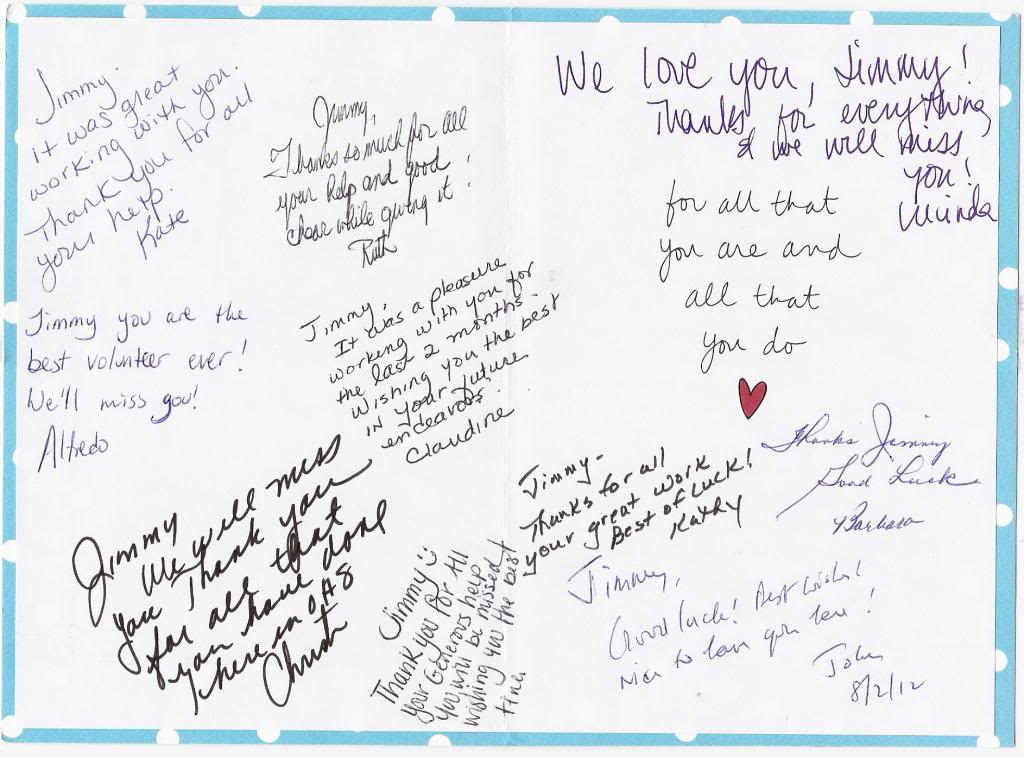 Jimmy.
it was great
working with you.
Thank you for all
your help.
Kate
Jimmy,
Thanks so much for all
your help and good
cheer while giving it!
Ruth
We love you, Jimmy!
Thanks for everything
& we will miss
you!
Lucinda
for all that
you are and
all that
you do
Jimmy you are the
best volunteer ever!
We'll miss you!
Alfredo
Jimmy,
It was a pleasure
working with you for
the last 2 months.
Wishing you the best
in your future
endeavors.
Claudine
Jimmy
We will miss
you Thank you
for all that
you have done
here in OAS
Jimmy
Thank you for All
your Generous help
you will be missed
wishing you the best
Jimmy-
Thanks for all
your great work
Best of Luck!
Kathy
Thanks Jimmy
Good Luck
Barbara
Jimmy,
Good luck! Best wishes!
Nice to have you here!
John
8/2/12